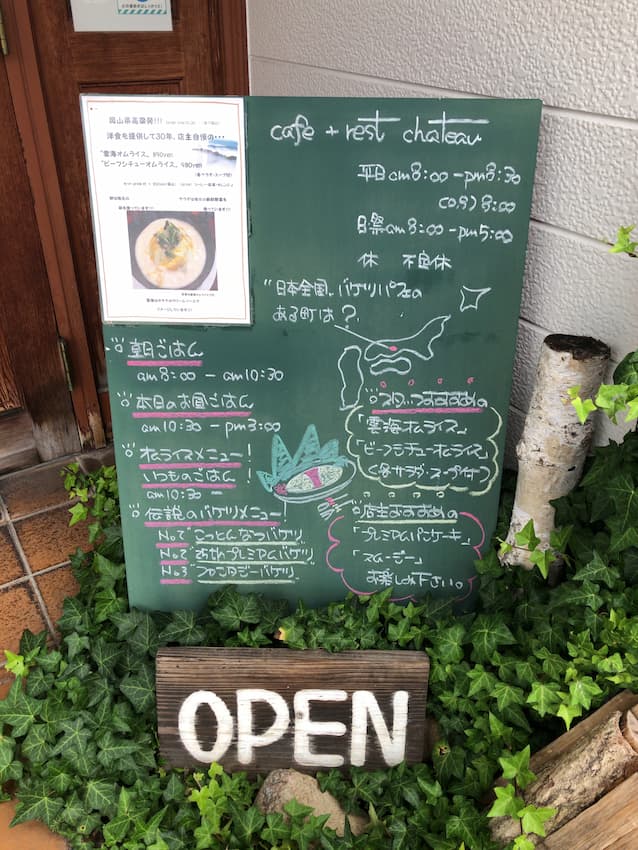 岡山県高梁発!!!
洋食を提供して30年、店主自慢の・・・
*雲海オムライス、890yen
*ビーフシチューオムライス、980yen
cafe + rest chateau
平日am8:00-pm8:30
(O.S) 8:00
日祭am8:00-pm5:00
休 不定休
"日本全国、バケツパフェの
ある町は?
朝ごはん
am8:00 - am10:30
本日のお昼ごはん
am10:30 - pm3:00
オムライスメニュー!
いつものごはん!
am10:30 -
伝説のバケツメニュー!
No.1 ごっとんなつバケツ
No.2 プレミアムバケツ
No.3 ファンタジーバケツ
スタッフおすすめの
「雲海オムライス」
「ビーフシチューオムライス」
(各サラダ・スープ付)
店主おすすめの
「プレミアムパンケーキ」
「スムージー」
お楽しみ下さい。
OPEN